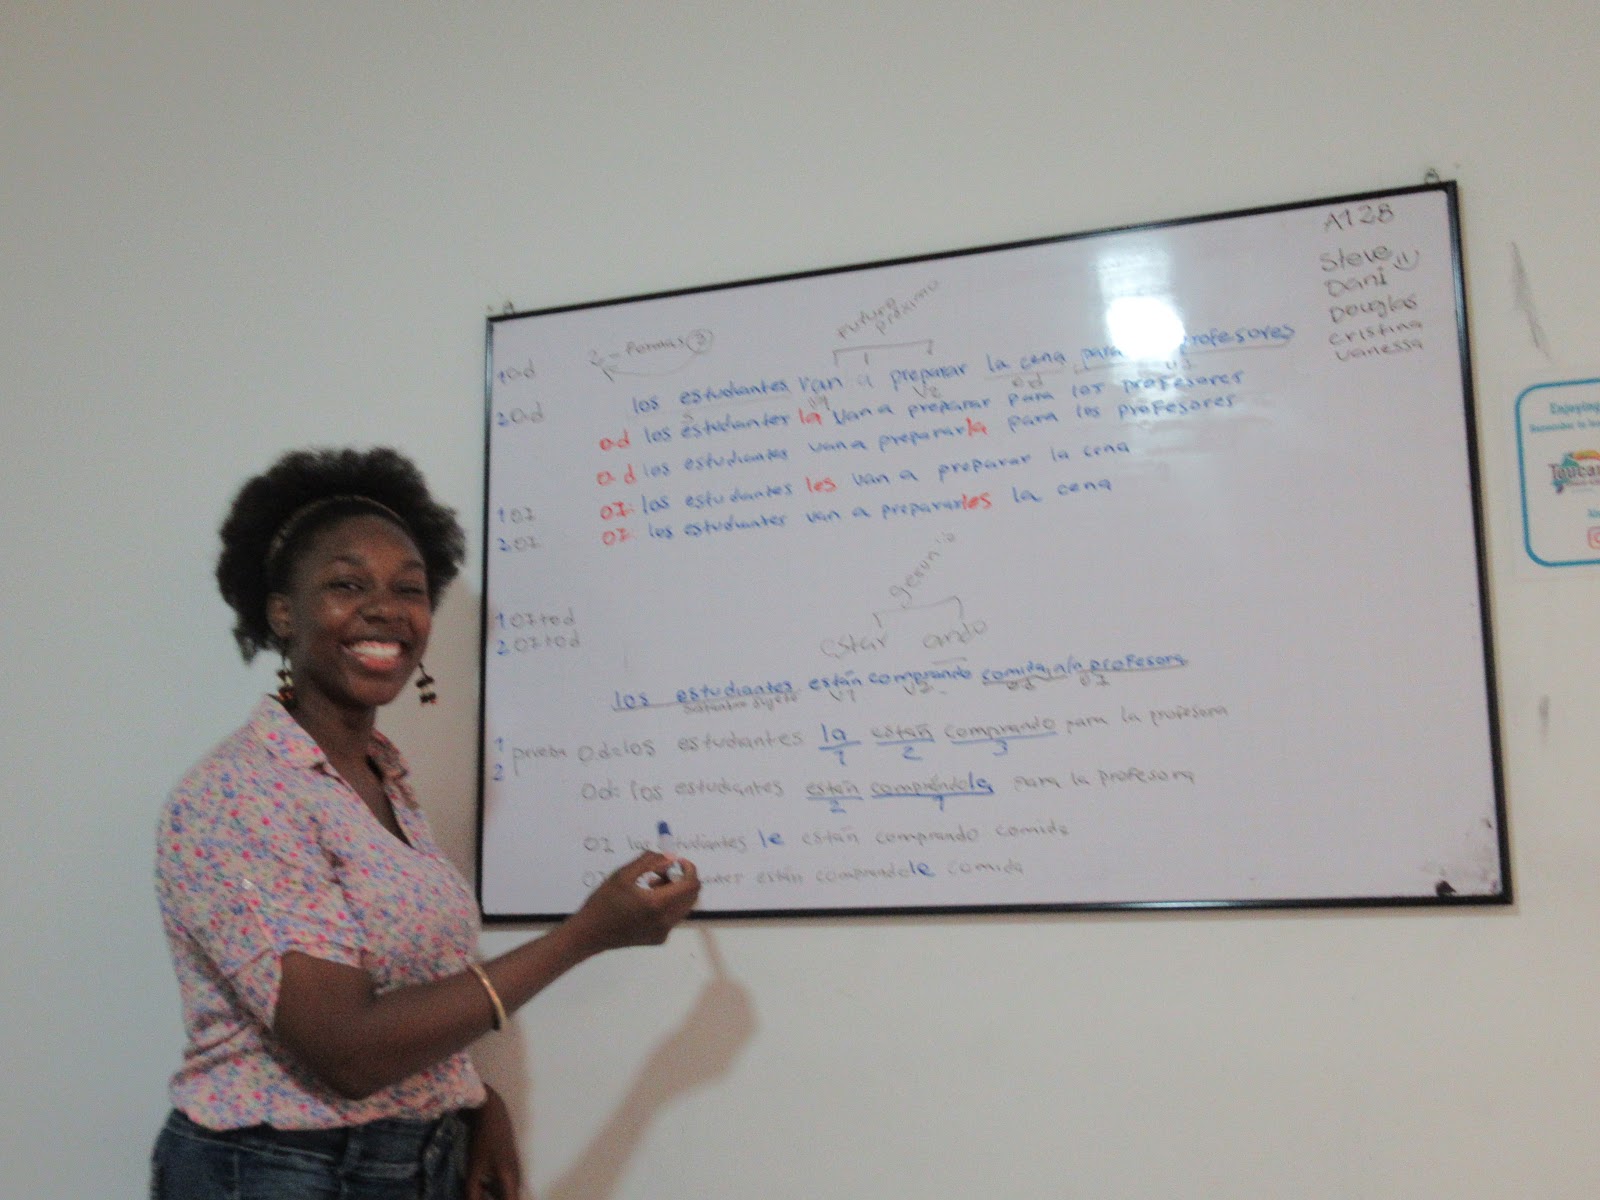 A128
Steve
Dani
Douglas
Cristina
Vanessa
Futuro próximo
2 formas 2
los estudiantes van a preparar la cena para profesores
s v1 v2 o.d
1 o.d
2 o.d
o.d los estudiantes la van a preparar para los profesores
o.d los estudiantes van a prepararla para los profesores
1 OI OI: los estudiantes les van a preparar la cena
2 OI OI: los estudiantes van a prepararles la cena
gerundio
1 OI+od
2 OI+od
estar ando
los estudiantes están comprando comida a/a profesora
sujeto v1 v2 od OI
1 prueba
2
O.d: los estudiantes la están comprando para la profesora
1 2 3
O.d: los estudiantes están comprándola para la profesora
2 1
OI los estudiantes le están comprando comida
están comprandole comida
Enjoying
Toucan